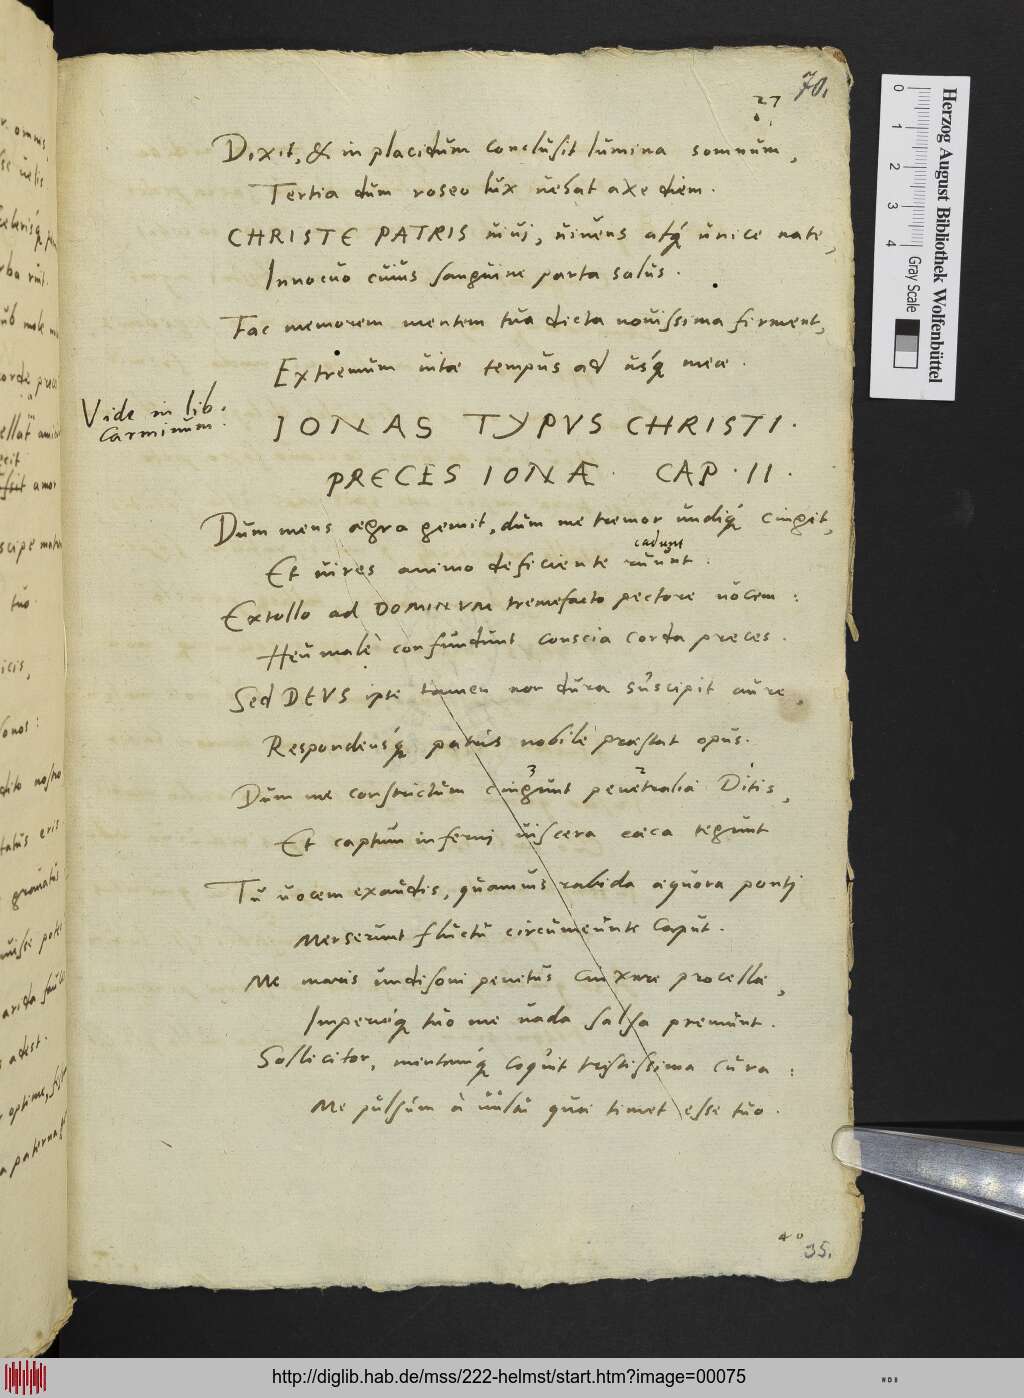 70.
27
Dixit, & in placidum conclusit lumina somnum,
Tertia dum roseo lux uehat axe diem.
CHRISTE PATRIS uiui, uiuens atq́ unice nate,
Innocuo cuius sanguine parta salus.
Fac memorem mentem tua dicta nouissima firment,
Extremum uitae tempus ad usq́ meae.
Vide in lib.
carminum.
IONAS TYPVS CHRISTI.
PRECES IONÆ. CAP. II.
Dum mens aegra gemit, dum me tremor undiq́ cingit,
cadunt
Et uires animo deficiente ruunt.
Extollo ad DOMINVM tremefacto pectore uocem:
Heu malè confundunt conscia corda preces.
Sed DEVS ipse tamen non dura suscipit aure,
Respondensq́ patris nobile praestat opus.
3 2 1
Dum me constrictum cingunt penetralia Ditis,
Et captum inferni uiscera caeca tegunt
Tu uocem exaudis, quamuis rabida aequora ponti
Merserunt fluctu circumeunte caput.
Me maris undisoni penitus cinxere procellae,
Imperioq́ tuo me uada salsa premunt.
Sollicitor, mentemq́ coquit tristissima cura:
Me pulsum à uultu qui timet esse tuo.
40
35.
Herzog August Bibliothek Wolfenbüttel
0 1 2 3 4
Gray Scale
http://diglib.hab.de/mss/222-helmst/start.htm?image=00075